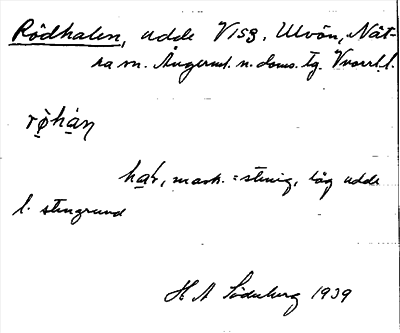 Rödhalen, udde V1s3. Ulvön, Nät-
ra sn. Ångerml. n. doms. Tg. Vvarsl.
rø̣hạṇ
hạr, mask. = stenig, låg udde
l. stengrund
H A Söderberg 1939